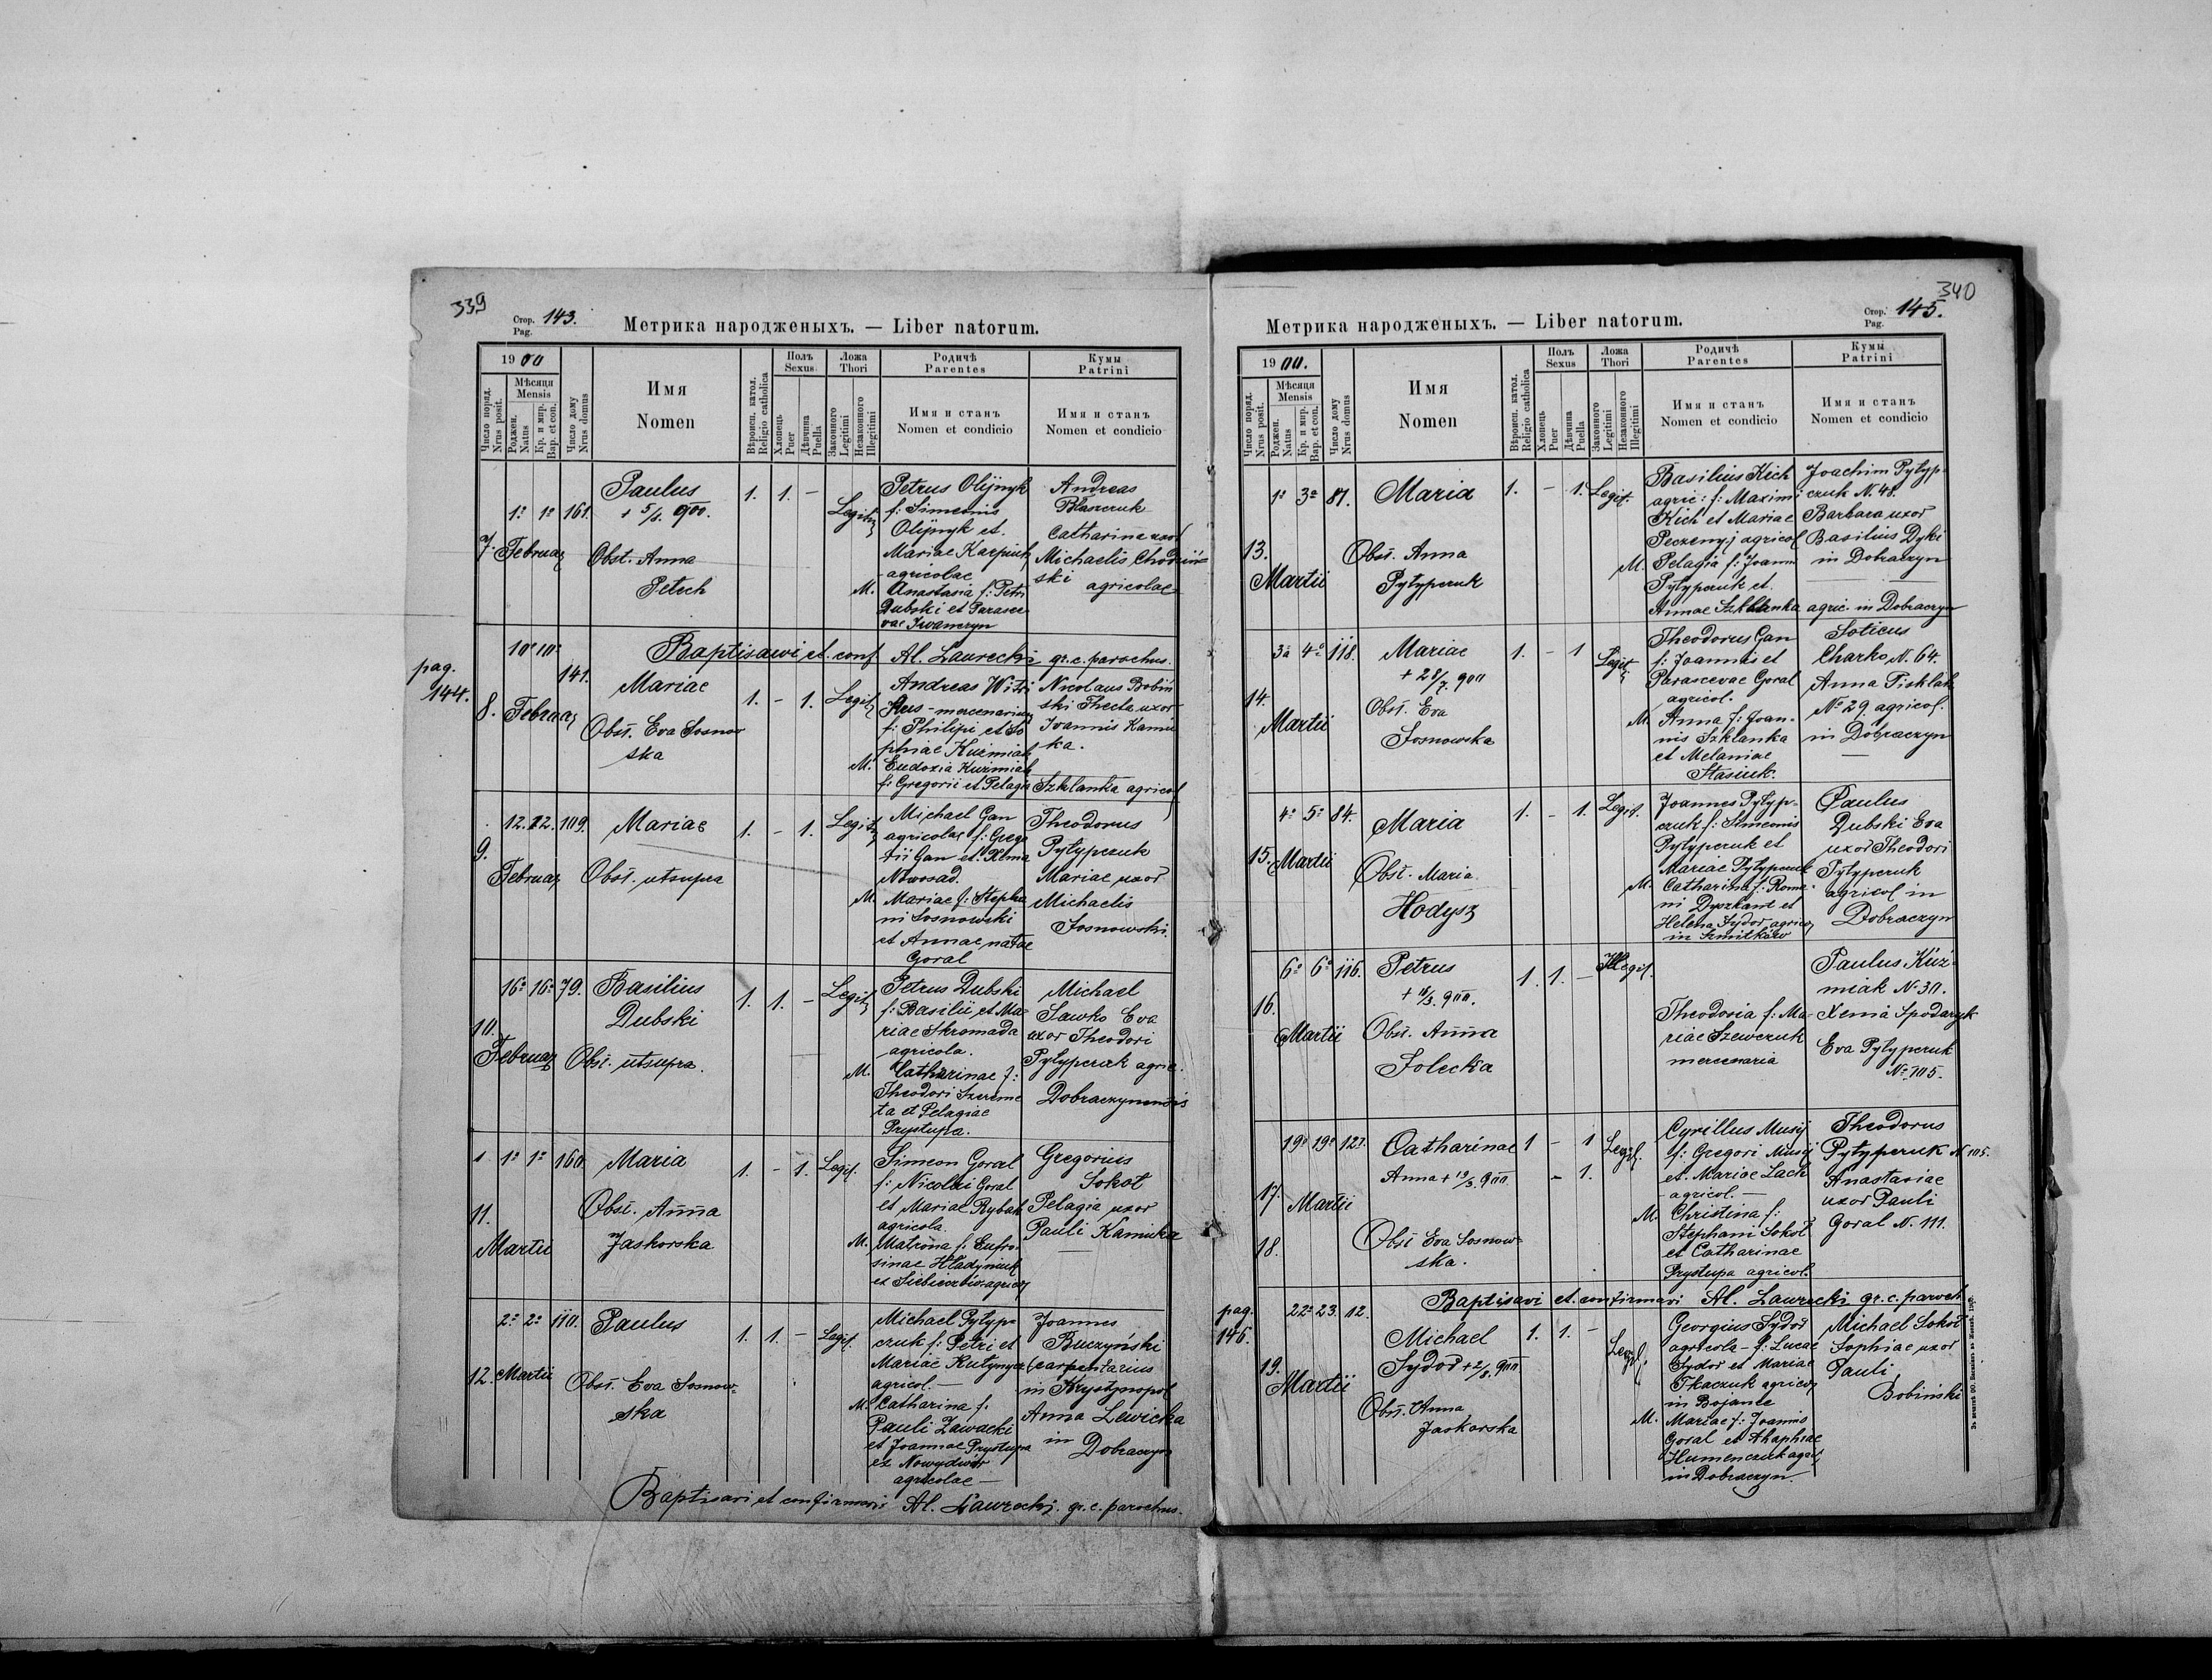 339
Стор. Pag. 143.
Метрика народженыхъ. — Liber natorum.
1900
Число поряд. Nrus posit.
Мѣсяця Mensis
Роджен. Natus
Кр. и мир. Bap. et con.
Число дому Nrus domus
Имя Nomen
Вѣроисп. катол. Religio catholica
Полъ Sexus
Хлопець Puer
Дѣвчина Puella
Ложа Thori
Законного Legitimi
Незаконного Illegitimi
Родичѣ Parentes
Имя и станъ Nomen et condicio
Кумы Patrini
Имя и станъ Nomen et condicio
7. 1º 1º 161.
Februar
Paulus
+ 5/8. 900.
Obst. Anna
Petech
1. 1. –
Legit
Petrus Olijnyk
f: Simeonis
Olijnyk et
Mariae Karpiuk
agricolae
M. Anastasia f: Petri
Dubski et Parasce
vae Iwanczyn
Andreas
Blaszczuk
Catharina uxor
Michaelis Chodziń
ski
agricolae
Baptisavi et conf Al. Laurecki gr. c. parochus.
pag.
144.
8. 10º 10º 141.
Februar
Mariae
Obst. Eva Sosnow
ska
1. - 1. Legit
Andreas Witri
kus - mercenarius
f: Philipi et So
phiae Kuźmiak
M. Eudoxia Kuźmiak
f: Gregorii et Pelagia
Nicolaus Bobiń
ski Thecla uxor
Ioannis Kamin
ka.
Szklanka agricol
9. 12. 12. 109.
Februar
Mariae
Obst. utsupra
1. - 1. Legit
Michael Gan
agricolae f: Grego
rii Gan et Xenia
Nowosad.
M. Mariae f: Stepha
ni Sosnowski
et Annae natae
Goral
Theodorus
Pytypczuk
Mariae uxor
Michaelis
Sosnowski.
10. 16º 16º 79.
Februar
Basilius
Dubski
Obst. utsupra.
1. 1. - Legit
Petrus Dubski
f: Basilii et Ma-
riae Skromada
agricola.
M. Catharinae f:
Theodori Szereme
ta et Pelagiae
Prystupa.
Michael
Sawko Eva
uxor Theodori
Pytypczuk agric.
Dobraczynensis
11. 1º 1º 160
Martii
Maria
Obst. Anna
Jaskorska
1. - 1. Legit.
Simeon Goral
f: Nicolai Goral
et Mariae Rybak
agricola
M. Matrona f: Eufro-
sinae Hladyniuk
Gregorius
Sokoł
Pelagia uxor
Pauli Kaminka
12. 2º 2º 110.
Martii
Paulus
Obst. Eva Sosnow-
ska
1. 1. - Legit.
Michael Pytyp-
czuk f: Petri et
Mariae Kutynycz
agricol. —
M. Catharina f:
Pauli Zawacki
et Joannae Prystupa
ex Nowydwór
agricolae —
Joannes
Buczyński
carpentarius
in Krystynopol
Anna Lewicka
in
Dobraczyn
Baptisavi et confirmavi Al. Laurecki. gr. c. parochus.
340
Стор. Pag. 145.
Метрика народженыхъ. — Liber natorum.
1900.
Число поряд. Nrus posit.
Мѣсяця Mensis
Роджен. Natus
Кр. и мир. Bap. et con.
Число дому Nrus domus
Имя Nomen
Вѣроисп. катол. Religio catholica
Полъ Sexus
Хлопець Puer
Дѣвчина Puella
Ложа Thori
Законного Legitimi
Незаконного Illegitimi
Родичѣ Parentes
Имя и станъ Nomen et condicio
Кумы Patrini
Имя и станъ Nomen et condicio
13. 1º 3º 87.
Martii
Maria
Obst. Anna
Pytypczuk
1. - 1. Legit.
Basilius Kich
agric: f: Maximi
Kich et Mariae
Peczenyj agricol
M. Pelagia f: Joann
Pytypczuk et
Annae Szklanka
Joachim Pytyp-
czuk N. 48.
Barbara uxor
Basilius Dyki
in Dobraczyn
agric. in Dobraczyn
14. 3º 4º 118.
Martii
Mariae
+ 28/7. 900
Obst. Eva
Sosnowska
1. - 1 Legit.
Theodorus Gan
f: Joannis et
Parascevae Goral
agricol.
M. Anna f: Joan-
nis Szklanka
et Melaniae
Stasiuk.
Soticus
Charko N. 64.
Anna Pisklak
Nº 29 agricol.
in Dobraczyn
15. 4º 5º 84.
Martii
Maria
Obst. Maria
Hodysz
1. - 1. Legit.
Joannes Pytyp-
czuk f: Simeonis
Pytypczuk et
Mariae Pytypczuk
M. Catharina f: Roma-
ni Dyszkant et
Helena Sydor agrico
in Szmitków
Paulus
Dubski Eva
uxor Theodori
Pytypczuk
agricol in
Dobraczyn
16. 6º 6º 116.
Martii
Petrus
+ 18/3. 900.
Obst. Anna
Solecka
1. 1. - Illegit.
Theodosia f: Ma-
riae Szewczuk
mercenaria
Paulus Kuź-
miak N. 30.
Xenia Spodaryk
Eva Pytypczuk
Nº 105.
17. 19º 19º 121.
Martii
18.
Catharinae
Anna + 19/3. 900
Obst Eva Sosnow-
ska.
1 - 1 Legit.
- 1.
Cyrillus Musij
f: Gregori Musij
et Mariae Lach
agricol. —
M. Christina f:
Stephani Sokoł
et Catharinae
Prystupa agricol.
Theodorus
Pytypczuk N 105.
Anastasiae
uxor Pauli
Goral N. 111.
Baptisavi et confirmavi Al. Laurecki gr. c. paroch
pag.
146.
19. 22º 23. 12.
Martii
Michael
Sydor + 2/8. 900
Obst. Anna
Jaskorska
1. 1. - Legit.
Georgius Sydor
agricola - f: Lucae
Sydor et Mariae
Tkaczuk agricol
in Bojanie
M. Mariae f: Joannis
Goral et Ahaphiae
Humenczuk agric
in Dobraczyn
Michael Sokoł
Sophiae uxor
Pauli
Bobiński